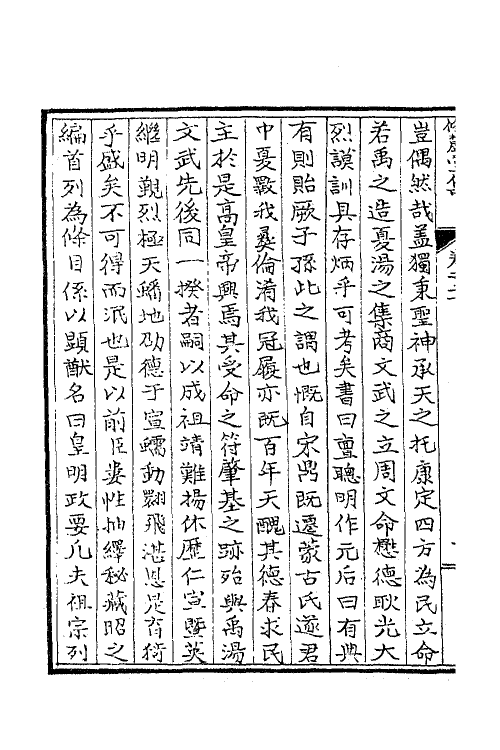 豈偶然哉蓋獨秉聖神承天之托康定四方為民立命
若禹之造夏湯之集商文武之立周文命懋德耿光大
烈謨訓具存炳乎可考矣書曰亶聰明作元后曰有典
有則貽厥子孫此之謂也慨自宋鼎既遷蒙古氏遂君
中夏斁我彝倫淆我冠履亦既百年天醜其德春求民
主於是高皇帝興焉其受命之符肇基之跡殆與禹湯
文武先後同一揆者嗣以成祖靖難揚休歷仁宣暨英
繼明覲烈極天蟠地劭德于宣蠕動翾飛湛恩是育猗
乎盛矣不可得而泯也是以前臣婁性抽繹秘藏昭之
編首列為條目係以顯猷名曰皇明政要凡夫祖宗列